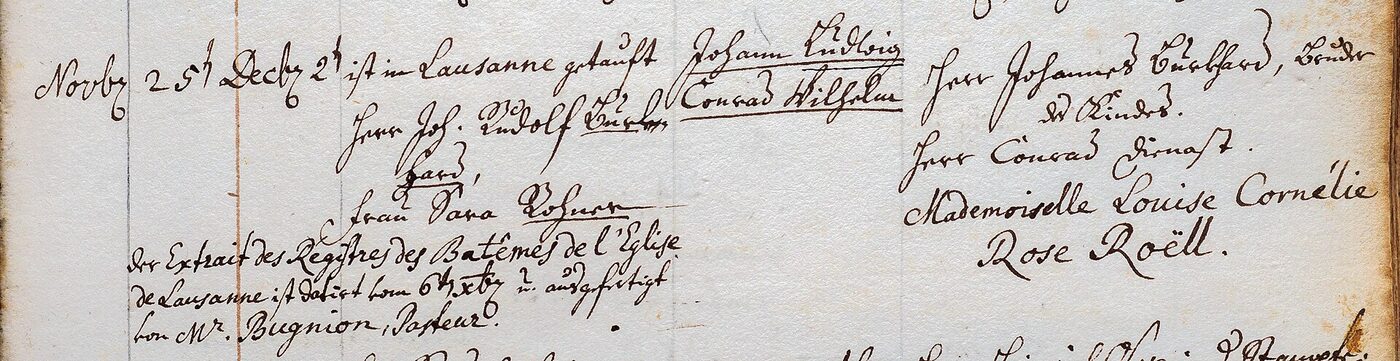 Novbr 25t Decbr 2t ist in Lausanne getauft
Herr Joh. Rudolf Burk-
hard,
Frau Sara Rohner
der Extrait des Registres des Batêmes de l'Eglise
de Lausanne ist datirt vom 6t Xbr u. ausgefertigt
von Mr. Bugnion, Pasteur.
Johann Ludwig
Conrad Wilhelm
Herr Johannes Burkhard, Bruder
des Kindes.
Herr Conrad Dienast.
Mademoiselle Louise Cornélie
Rose Roëll.